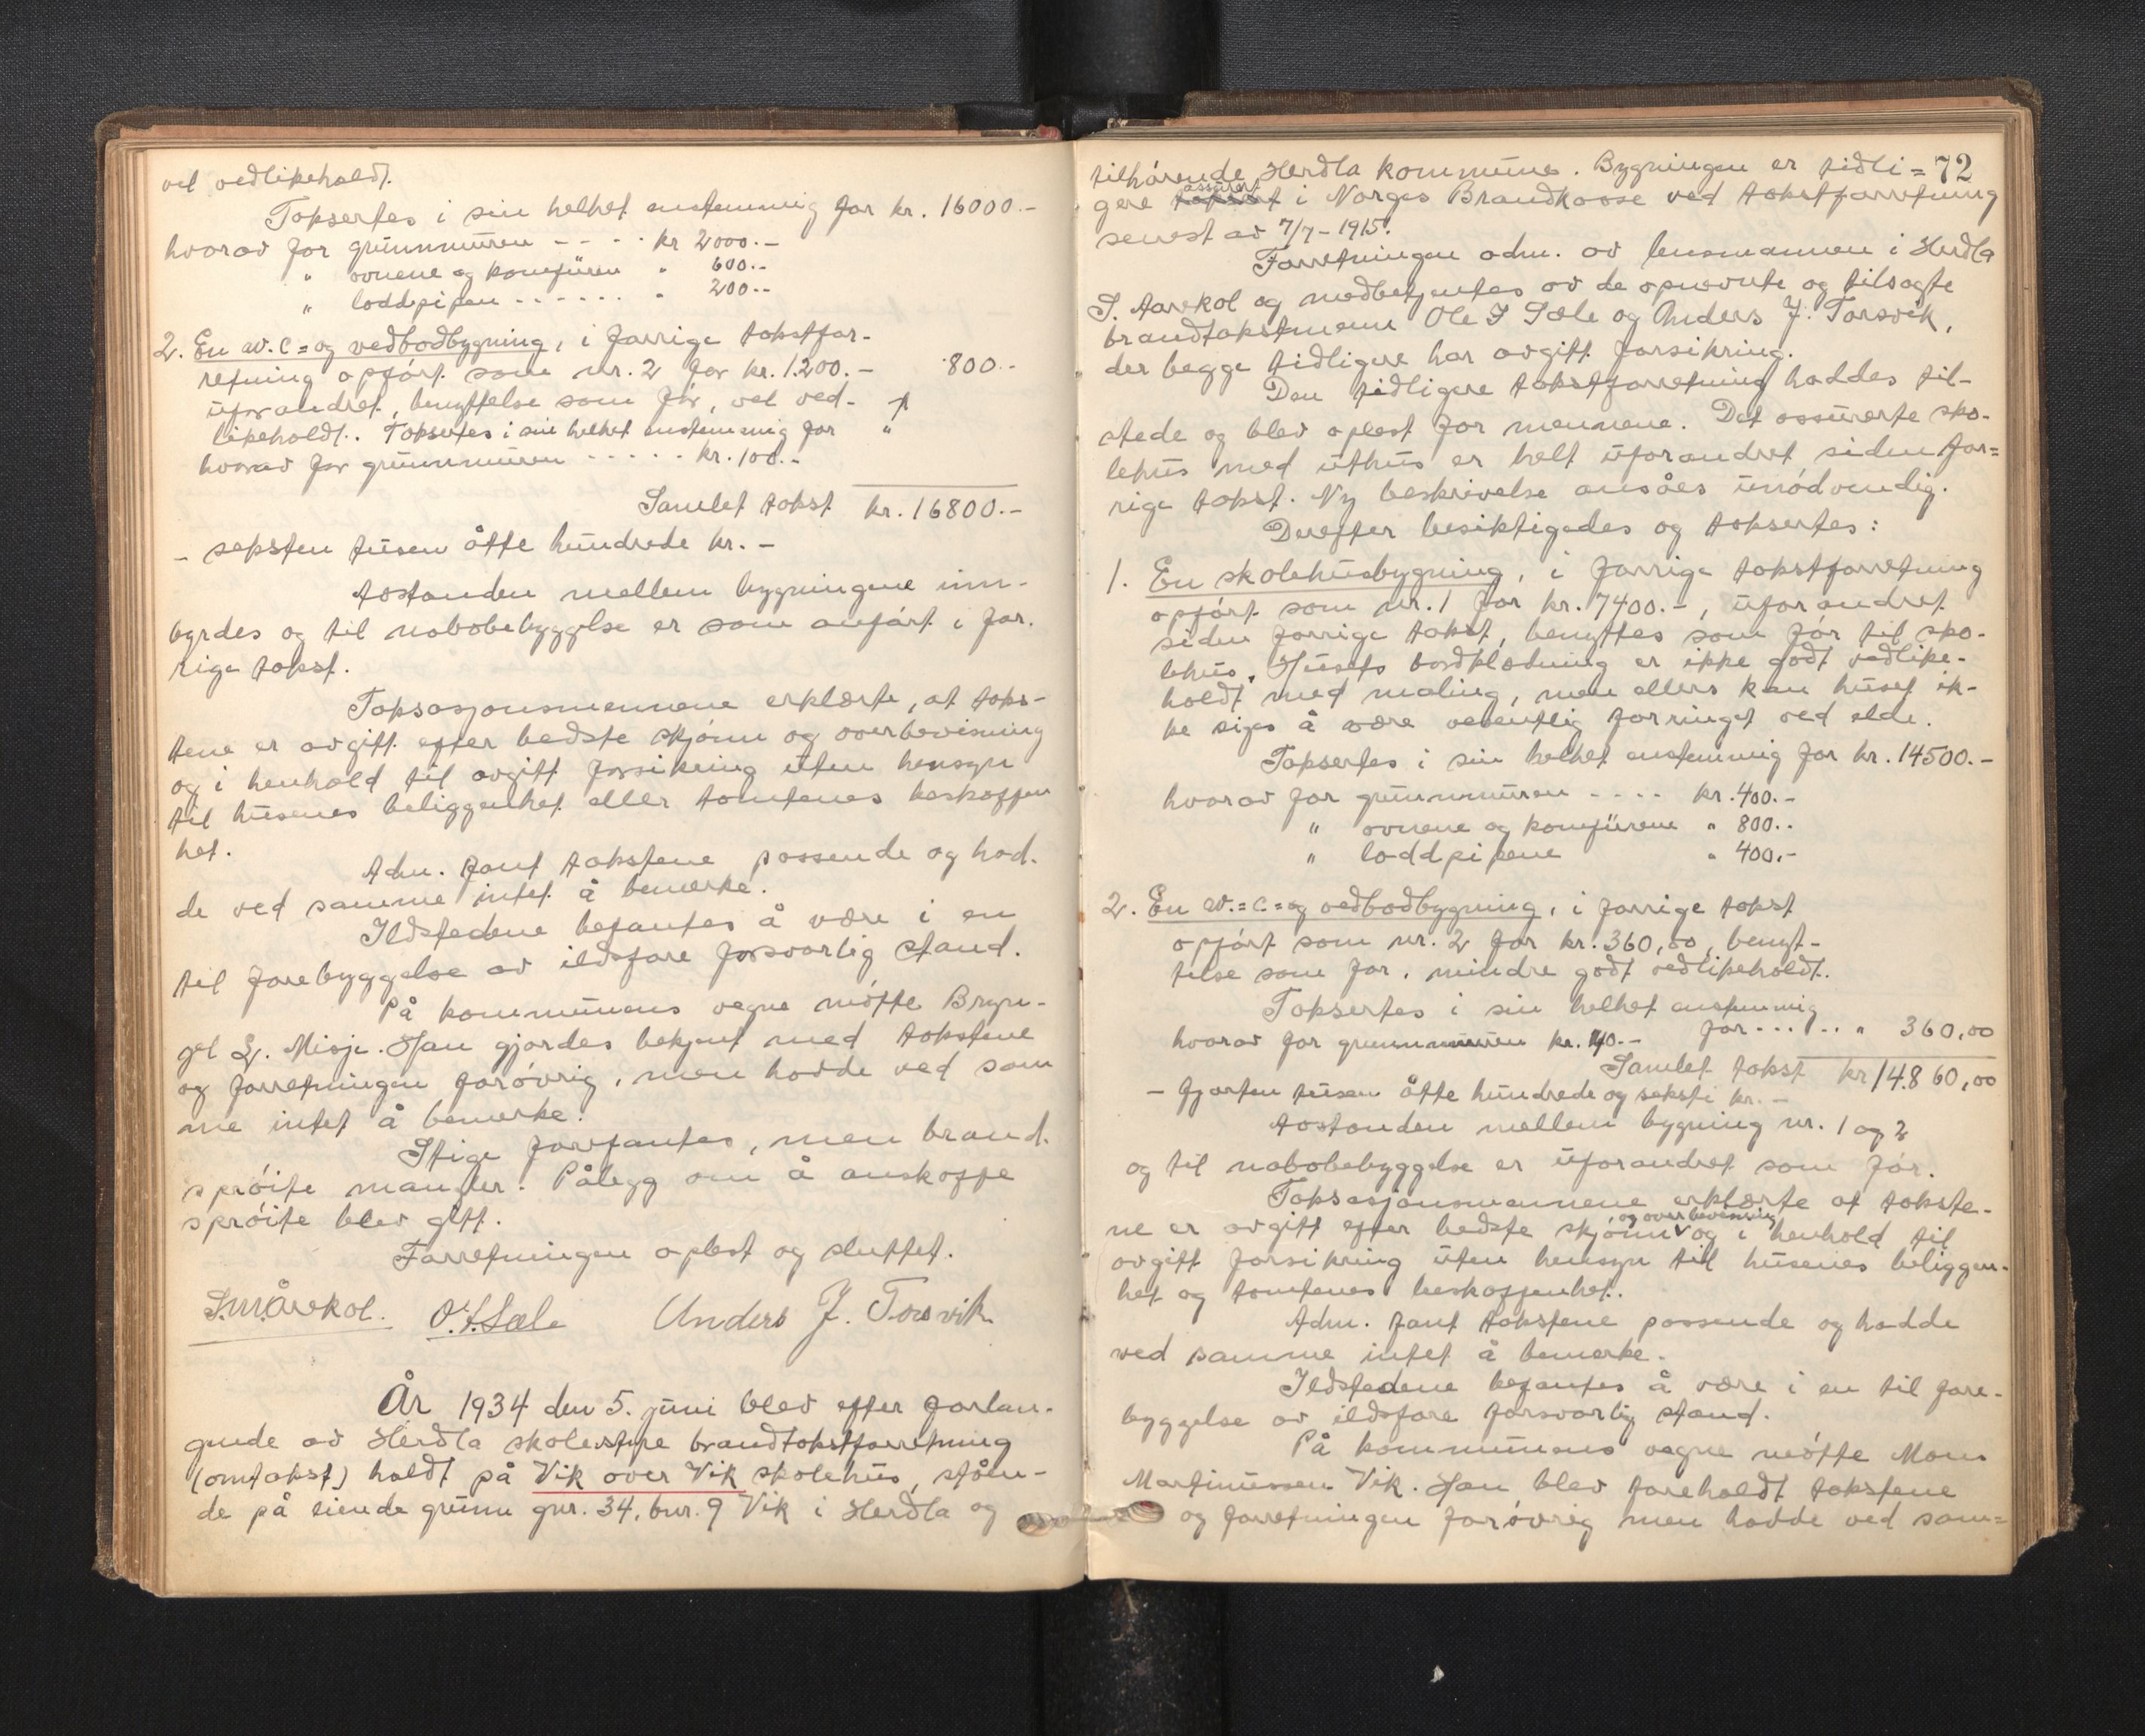 vel vedlikeholdt.
Taksertes i sin helhet enstemmig for kr. 16000.-
hvorav for grunnmuren - - - - kr 2000.-
" ovnene og komfüren " 600.-
" loddpipen - - - - - - " 200.-
2. En w.c= og vedbodbygning, i forrige takstfor-
retning opført som nr. 2 for kr. 1200.- 800.-
uforandret, benyttelse som før, vel ved-
likeholdt. Taksertes i sin helhet enstemmig for "
hvorav for grunnmuren - - - - - kr. 100.-
Samlet takst kr. 16800.-
- seksten tusen åtte hundrede kr. -
Avstanden mellem bygningene inn-
byrdes og til nabobebyggelse er som anført i for-
rige takst.
Taksasjonsmennene erklærte, at taks-
tene er avgitt efter bedste skjønn og overbevisning
og i henhold til avgitt forsikring uten hensyn
til husenes beliggenhet eller tomtenes beskaffen
het.
Adm. fant takstene passende og had-
de ved samme intet å bemerke.
Ildstedene befantes å være i en
til forebyggelse av ildsfare forsvarlig stand.
På kommunens vegne møtte Bryn-
gel L. Misje. Han gjordes bekjent med takstene
og forretningen forøvrig, men hadde ved sam
me intet å bemerke.
Stige forefantes, men brand-
sprøite mangler. Pålegg om å anskaffe
sprøite blev gitt.
Forretningen oplest og sluttet.
S.M. Årekol. O.J. Sæle Anders J. Torsvik
År 1934 den 5. juni blev efter forlan-
gende av Herdla skolestyre brandtakstforretning
(omtakst) holdt på Vik over Vik skolehus, ståen-
de på eiende grunn gnr. 34, bnr. 9 Vik i Herdla og
72
tilhørende Herdla kommune. Bygningen er tidli=
assurert
gere taksert i Norges Brandkasse ved takstforretning
senest av 7/7-1915.
Forretningen adm. av lensmannen i Herdla
S. Aarekol og medbetjentes av de opnevnte og tilsagte
brandtakstmenn Ole J Sæle og Anders J. Torsvik,
der begge tidligere har avgitt forsikring.
Den tidligere takstforretning haddes til-
stede og blev oplest for mennene. Det assurerte sko-
lehus med uthus er helt uforandret siden for=
rige takst. Ny beskrivelse ansåes unødvendig.
Derefter besiktigedes og taksertes:
1. En skolehusbygning, i forrige takstforretning
opført som nr. 1 for kr. 7400.-, uforandret
siden forrige takst, benyttes som før til sko-
lehus. Husets bordklædning er ikke godt vedlike-
holdt med maling, men ellers kan huset ik-
ke siges å være vesentlig forringet ved elde.
Taksertes i sin helhet enstemmig for kr. 14500.-
hvorav for grunnmuren - - - - kr. 400.-
" ovnene og komfürene " 800.-
" loddpipene " 400.-
2. En w.=c.=og vedbodbygning, i forrige takst
opført som nr. 2 for kr. 360,00, benyt-
telse som før, mindre godt vedlikeholdt.
Taksertes i sin helhet enstemmig
for - - - - - " 360,00
hvorav for grunnmuren kr. 40.-
Samlet takst kr 14.860,00
- fjorten tusen åtte hundrede og seksti kr. -
Avstanden mellem bygning nr. 1 og 2
og til nabobebyggelse er uforandret som før.
Taksasjonsmennene erklærte at takste-
og overbevisning
ne er avgitt efter bedste skjønn og i henhold til
avgitt forsikring uten hensyn til husenes beliggen-
het og tomtenes beskaffenhet.
Adm. fant takstene passende og hadde
ved samme intet å bemerke.
Ildstedene befantes å være i en til fore-
byggelse av ildsfare forsvarlig stand.
På kommunens vegne møtte Mons
Martinussen Vik. Han blev foreholdt takstene
og forretningen forøvrig men hadde ved sam=